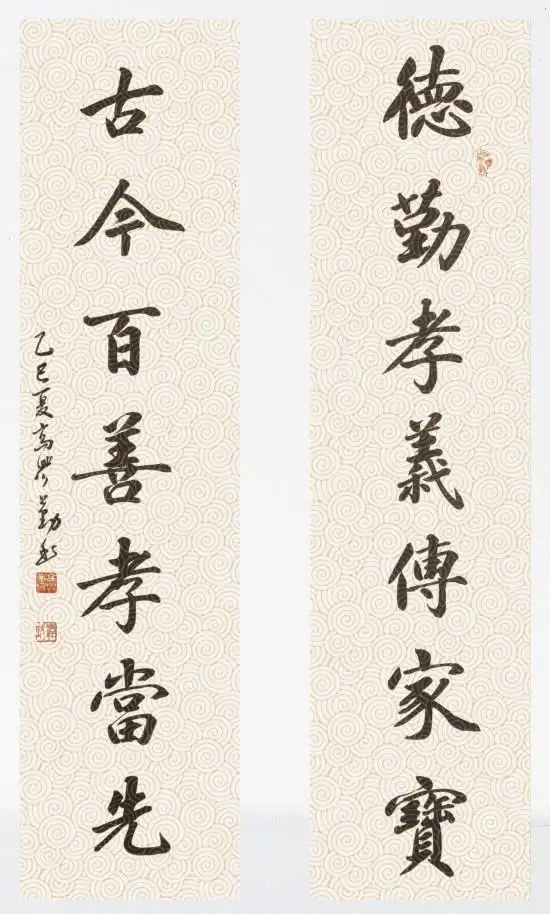 德勤孝義傳家寶
古今百善孝當先
乙巳夏高興勤書